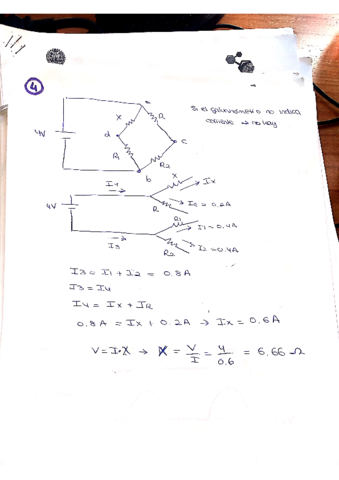 4
a
x
R
Si el galvanómetro no indica
corriente → no hay
4V
d
c
R1
R2
b
I4
x
Ix
4V
R
IR = 0.2A
R1
I1 = 0.4A
I3
R2
I2 = 0.4A
I3 = I1 + I2 = 0.8A
I3 = I4
I4 = Ix + IR
0.8A = Ix + 0.2A → Ix = 0.6A
V = I·X → X = V/I = 4/0.6 = 6.66 Ω